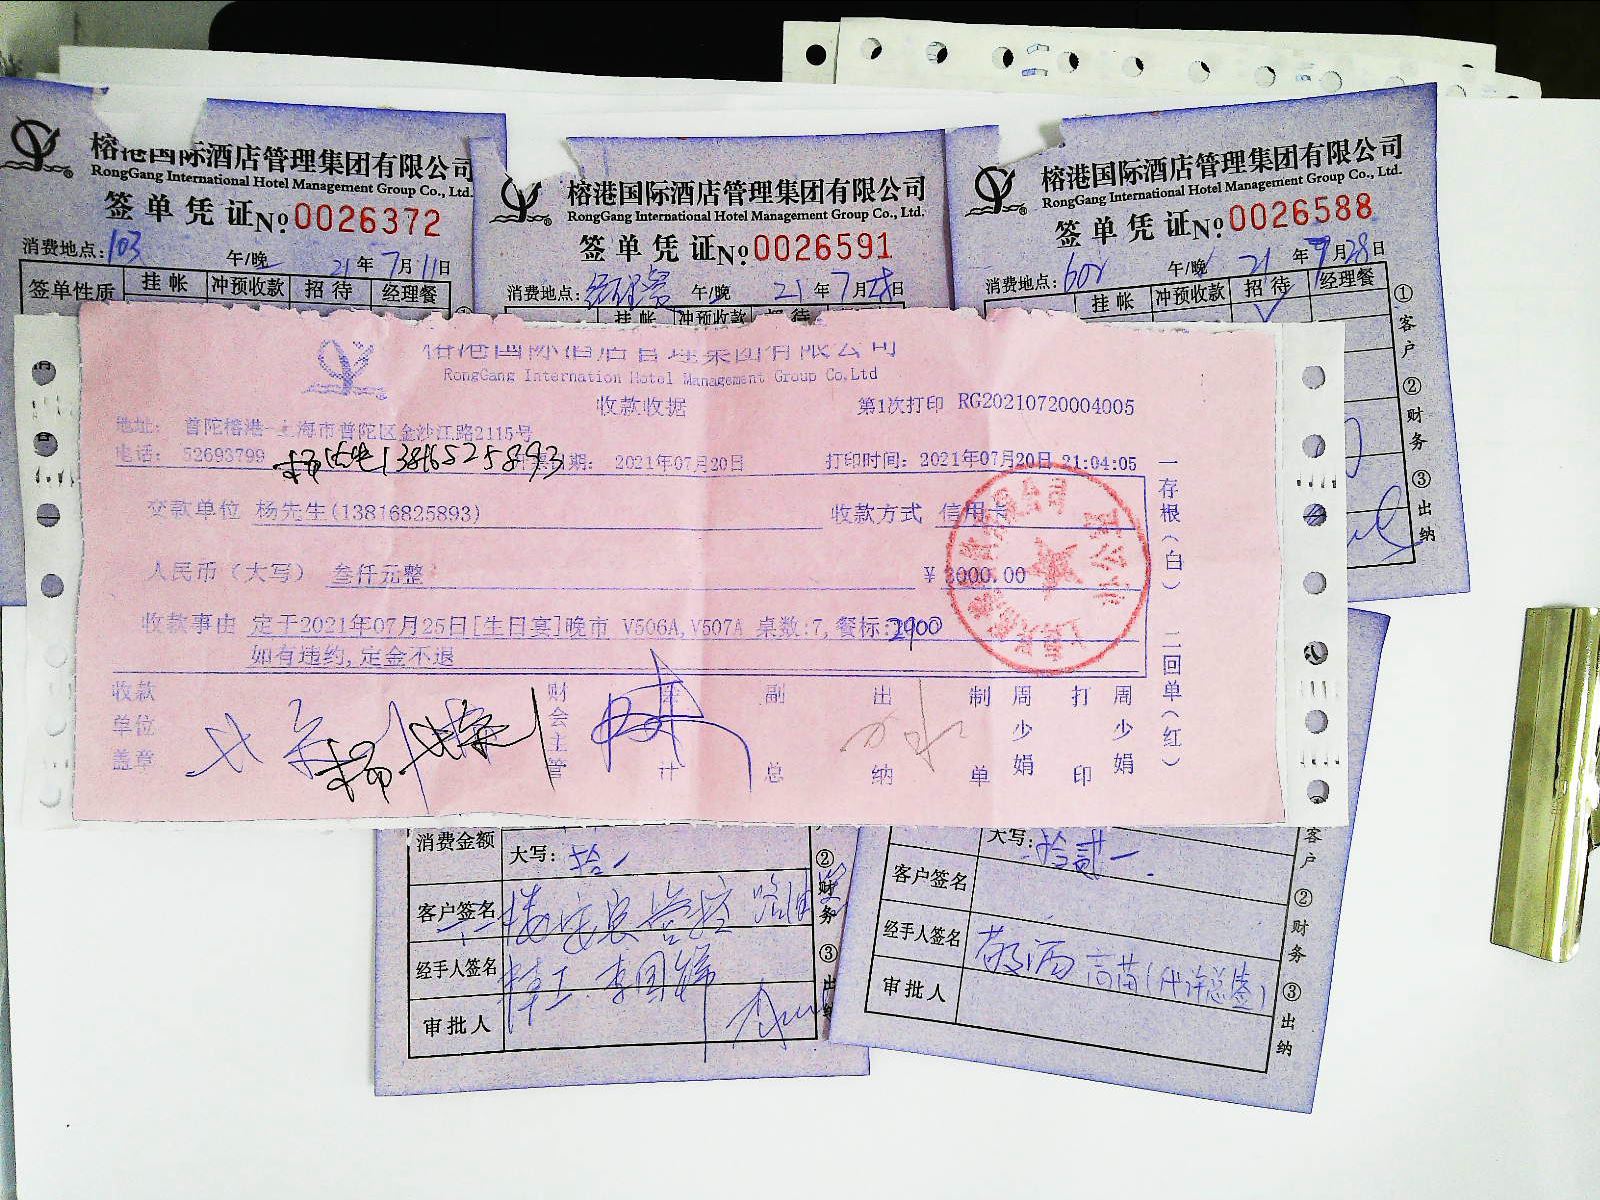 榕港国际酒店管理集团有限公司
RongGang International Hotel Management Group Co., Ltd.
签单凭证 No. 0026372
消费地点: 103 午/晚 21 年 7 月 11 日
签单性质 挂帐 冲预收款 招待 经理餐
榕港国际酒店管理集团有限公司
RongGang International Hotel Management Group Co., Ltd.
签单凭证 No. 0026591
消费地点: 午/晚 21 年 7 月 日
挂帐 冲预收款 招待
榕港国际酒店管理集团有限公司
RongGang International Hotel Management Group Co., Ltd.
签单凭证 No. 0026588
消费地点: 602 午/晚 21 年 7 月 28 日
挂帐 冲预收款 招待 经理餐
①客户 ②财务 ③出纳
榕港国际酒店管理集团有限公司
RongGang Internation Hotel Management Group Co,Ltd
收款收据 第1次打印 RG20210720004005
地址: 普陀榕港-上海市普陀区金沙江路2115号
电话: 52693799 日期: 2021年07月20日 打印时间: 2021年07月20日 21:04:05
13816825893
交款单位 杨先生(13816825893) 收款方式 信用卡
人民币（大写） 叁仟元整 ¥ 3000.00
收款事由 定于2021年07月25日[生日宴]晚市 V506A,V507A 桌数:7,餐标:2900
如有违约,定金不退
收款单位盖章 财会主管 会计 副总 出纳 制单 周少娟 打印 周少娟
一存根（白） 二回单（红）
消费金额 大写: 拾一
客户签名
经手人签名 李国锦
审批人
②财务 ③出纳
大写: 拾贰一
客户签名
经手人签名 高苗(代许总签)
审批人
客户 ②财务 ③出纳